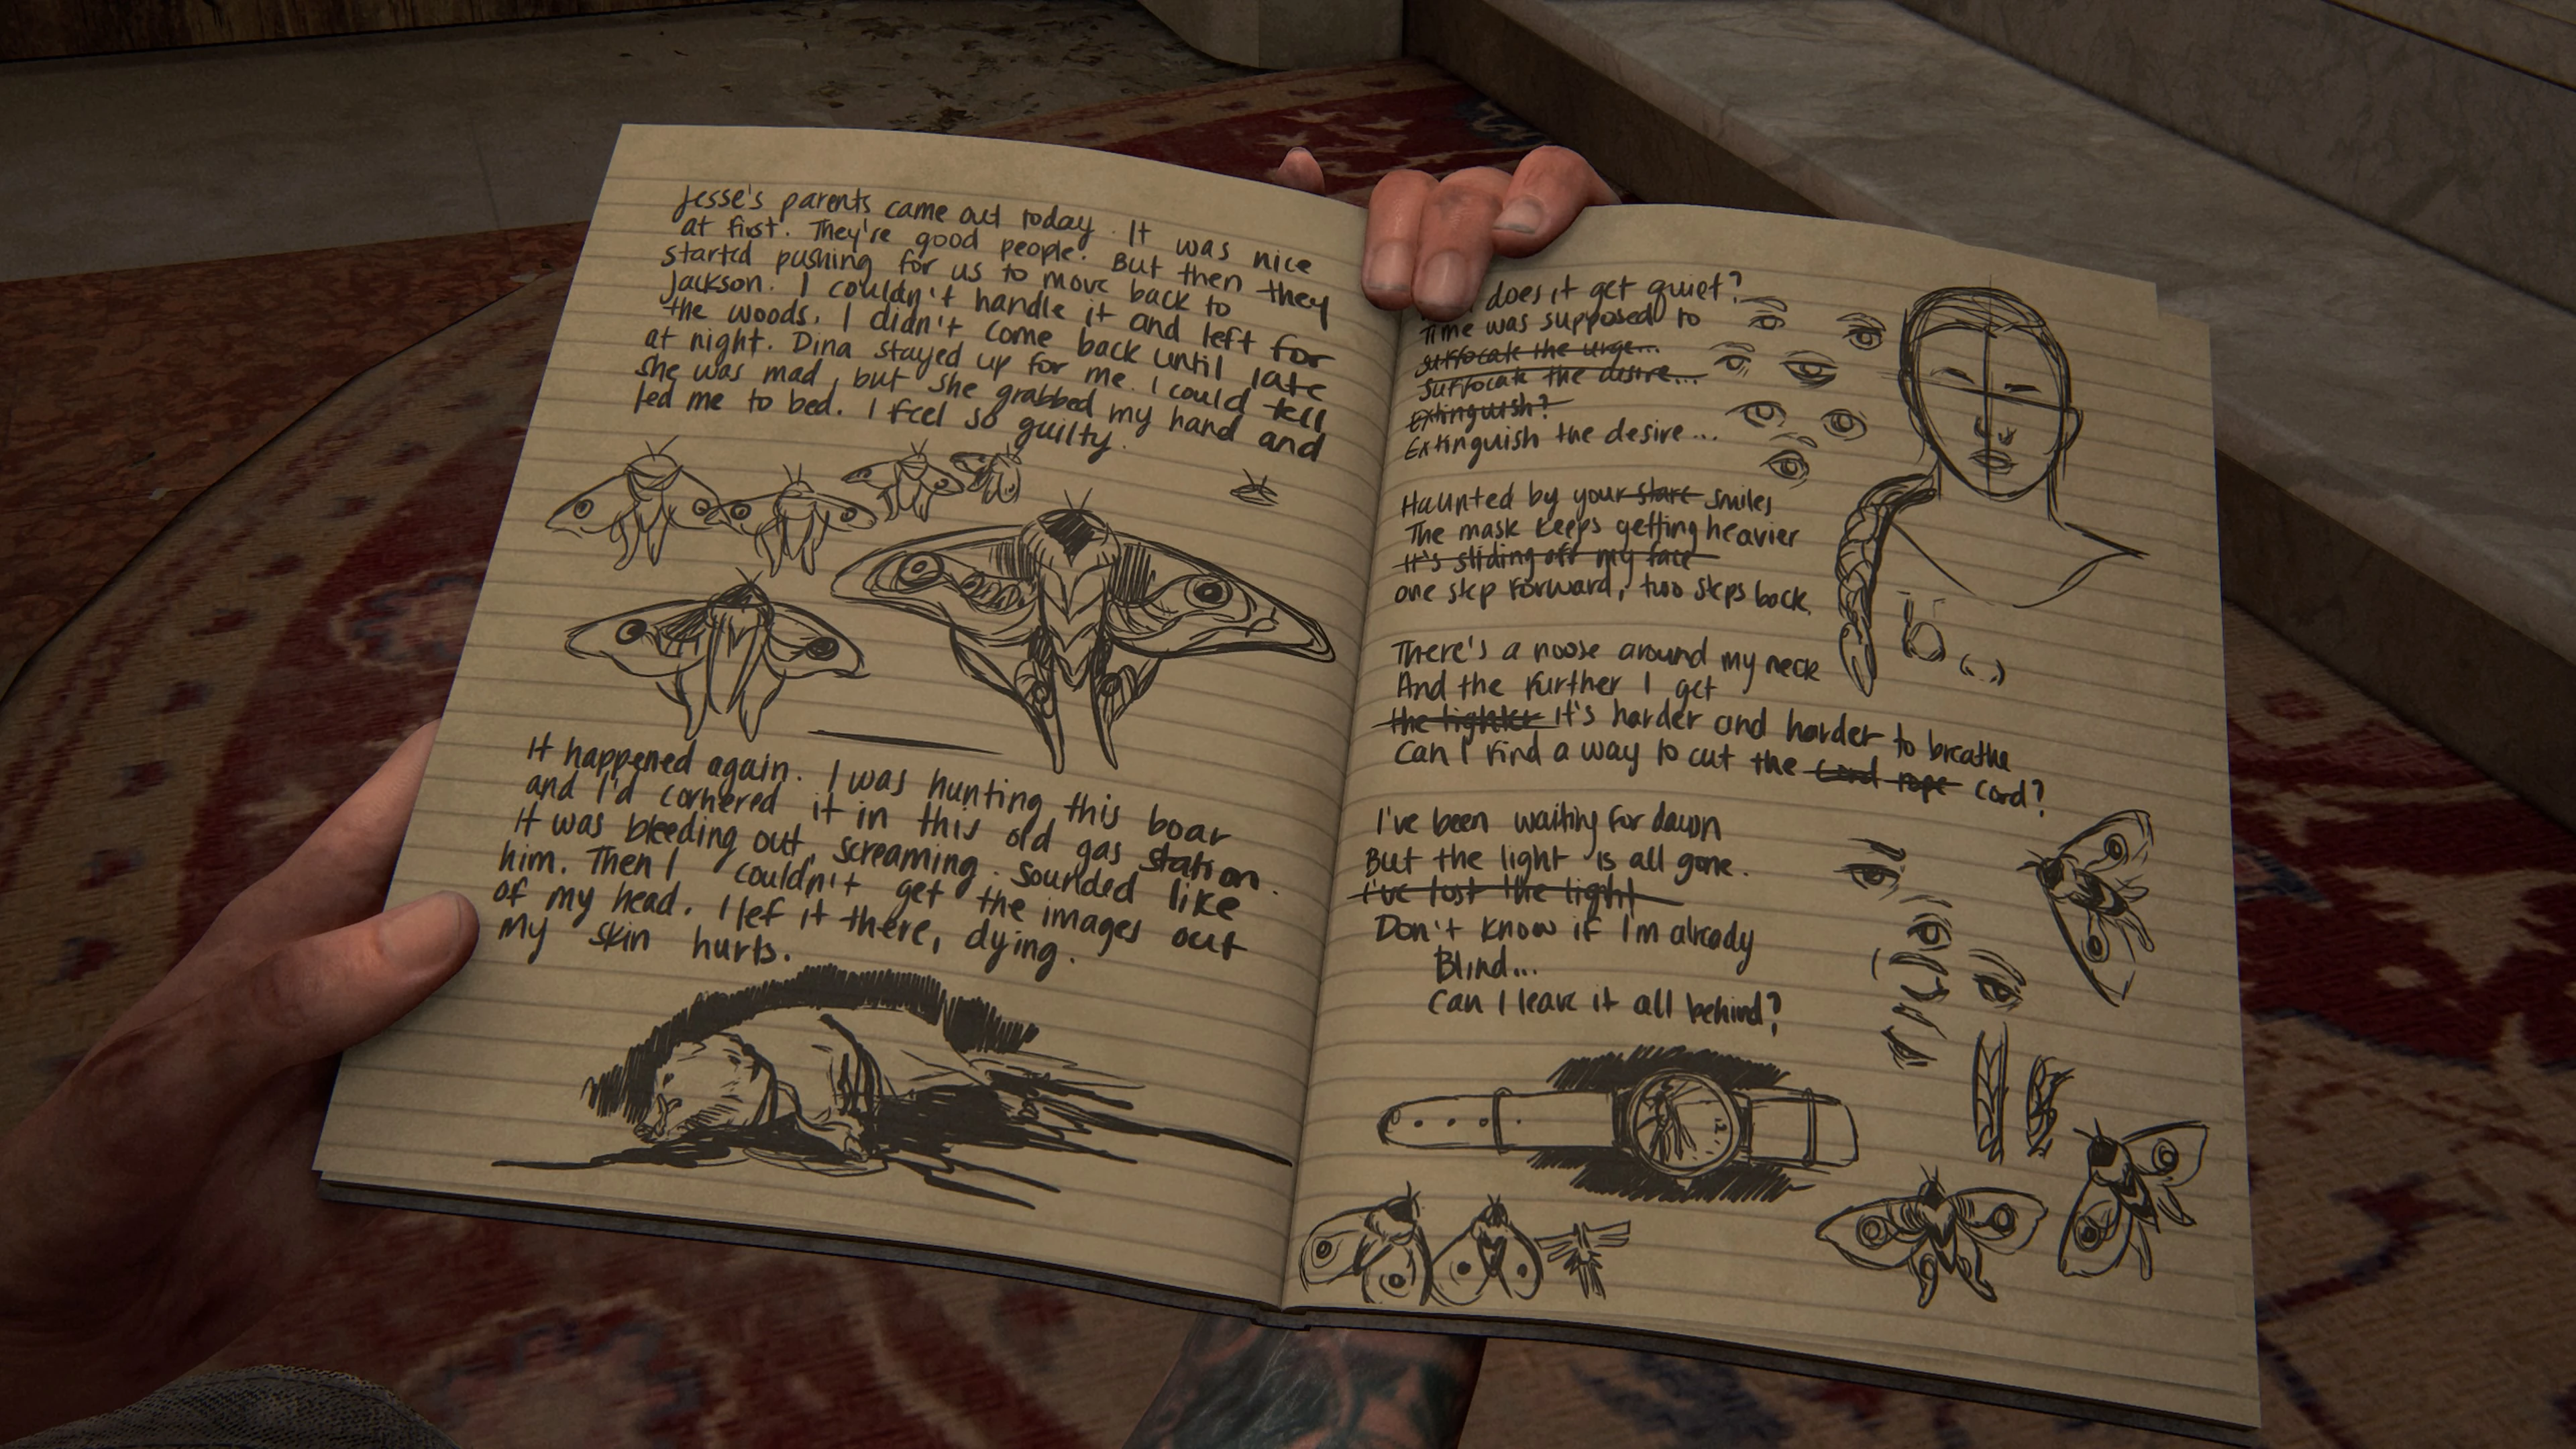 Jesse's parents came out today. It was nice
at first. They're good people. But then they
started pushing for us to move back to
Jackson. I couldn't handle it and left for
the woods. I didn't come back until late
at night. Dina stayed up for me. I could tell
she was mad, but she grabbed my hand and
led me to bed. I feel so guilty.
It happened again. I was hunting this boar
and I'd cornered it in this old gas station.
It was bleeding out, screaming. Sounded like
him. Then I couldn't get the images out
of my head. I lef it there, dying.
My skin hurts.
does it get quiet?
Time was supposed to
suffocate the urge...
Suffocate the desire...
Extinguish?
Extinguish the desire...
Haunted by your stare smiles
The mask keeps getting heavier
It's sliding off my face
one step forward, two steps back
There's a noose around my neck
And the further I get
the tighter it's harder and harder to breathe
Can I find a way to cut the cord rope cord?
I've been waiting for dawn
But the light is all gone.
I've lost the light
Don't know if I'm already
Blind...
Can I leave it all behind?